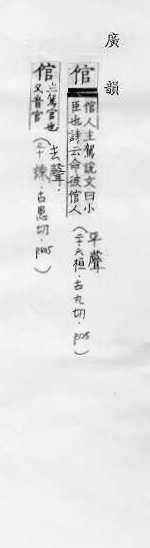 廣韻
倌
倌人主駕說文曰小
臣也詩云命彼倌人
平聲
(二十六桓.古丸切.P125)
倌
主駕官也
又音官
去聲
(三十諫.古患切.)